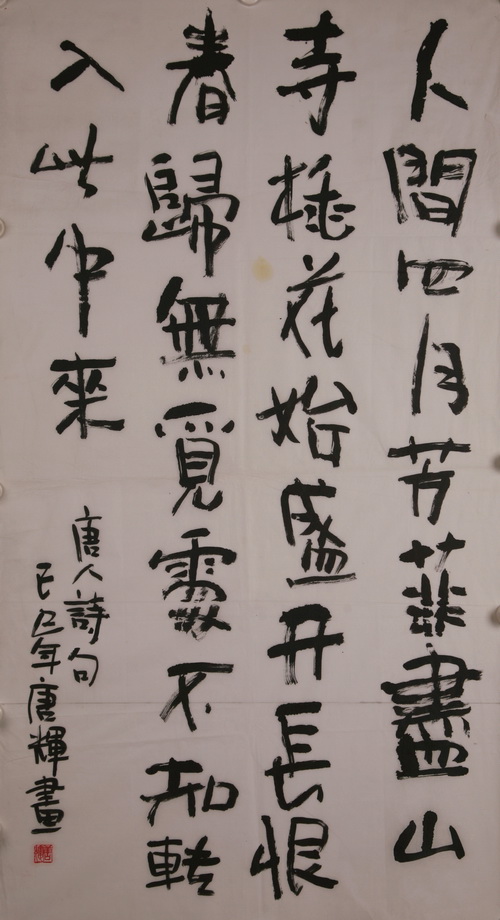 人間四月芳菲盡山
寺桃花始盛开長恨
春歸無覓處不知轉
入此中來
唐人詩句
己丑年唐輝畫